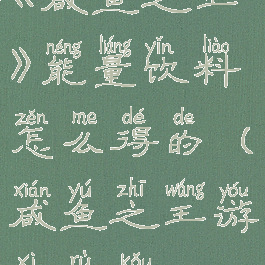 咸鱼之王
néng liáng yǐn liào
》能量饮料
zěn me dé de
怎么得的（
xián yú zhī wáng yóu
咸鱼之王游
xì rù kǒu